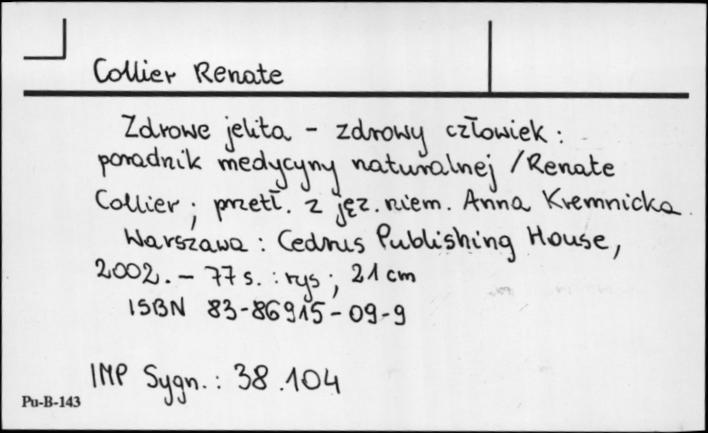 Collier Renate
Zdrowe jelita - zdrowy człowiek :
poradnik medycyny naturalnej / Renate
Collier ; przetł. z jęz. niem. Anna Kremnicka.
Warszawa : Cedrus Publishing House,
2002. - 77 s. : rys ; 21 cm
ISBN 83-86915-09-9
IMP Sygn. : 38.104
Pu-B-143